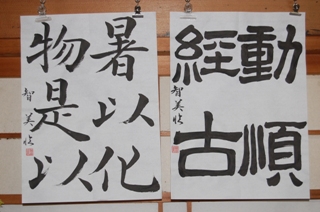 動順
經古
智美
暑以化
物是以
智美